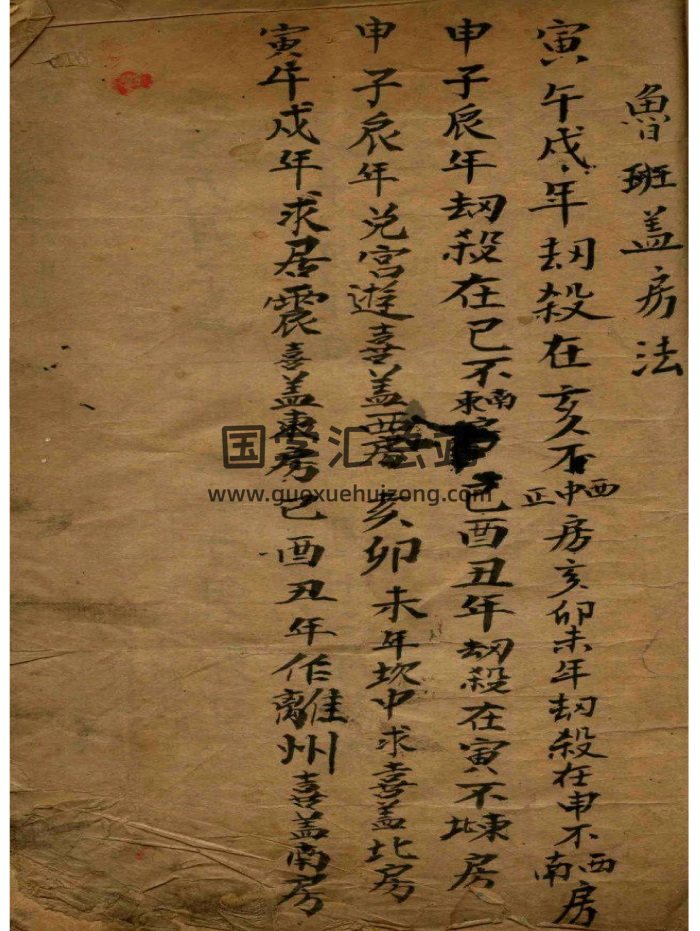 魯班盖房法
寅午戌年刼殺在亥不西中正房亥卯未年刼殺在申不西南房
申子辰年刼殺在已不南東房已酉丑年刼殺在寅不東北房
申子辰年兑宫遊喜盖西房亥卯未年坎中求喜盖北房
寅午戌年求居震喜盖東房已酉丑年作離州喜盖南房
www.guoxuehuizong.com